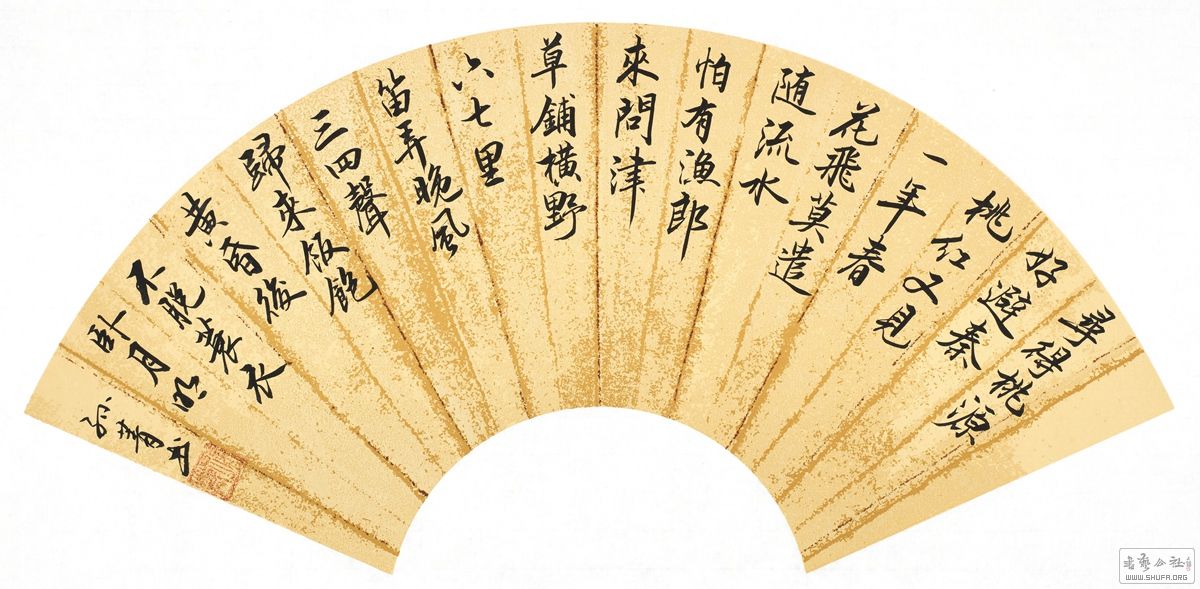 尋得桃源
好避秦
桃红又見
一年春
花飛莫遣
随流水
怕有漁郎
來問津
草鋪横野
六七里
笛弄晚風
三四聲
歸來饭飽
黄昏後
不脱蓑衣
卧月明
书
WWW.SHUFA.ORG